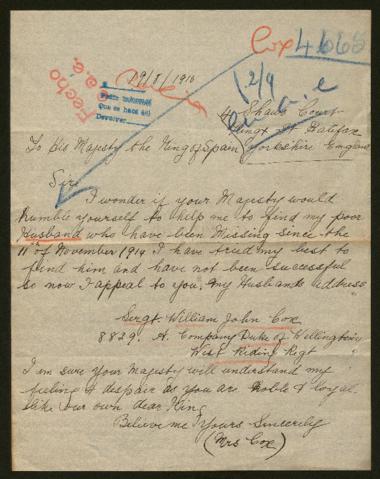 Cox 4665
19/8/1916
Hecho
12/9
4 Shaws Court
Halifax
To His Majesty the King of Spain Yorkshire England
Sir
I wonder if your Majesty would
humble yourself to help me to find my poor
Husband who have been Missing since the
11th of November 1914 I have tried my best to
find him and have not been successful
so now I appeal to you. My Husbands address
Sergt William John Cox
8829. A. Company Duke of Wellingtons
West Riding Regt
I am sure your Majesty will understand my
feeling of despair as you are noble & loyal
like our own dear King
Believe me Yours Sincerely
(Mrs Cox)